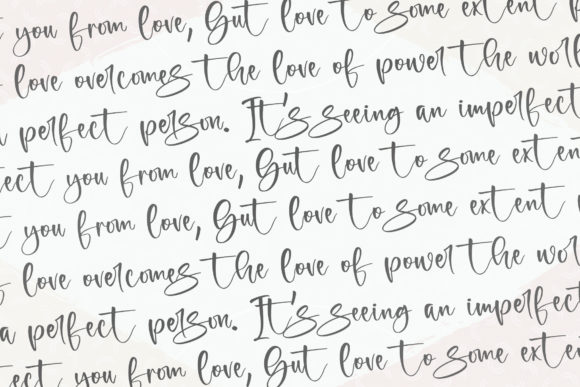 you from love, Gut love to some extent
love overcomes the love of power the worl
a perfect person. It's seeing an imperfect
ect you from love, Gut love to some exten
t you from love, Gut love to some extent
love overcomes the love of power the wor
a perfect person. It's seeing an imperfect
ect you from love, Gut love to some exten